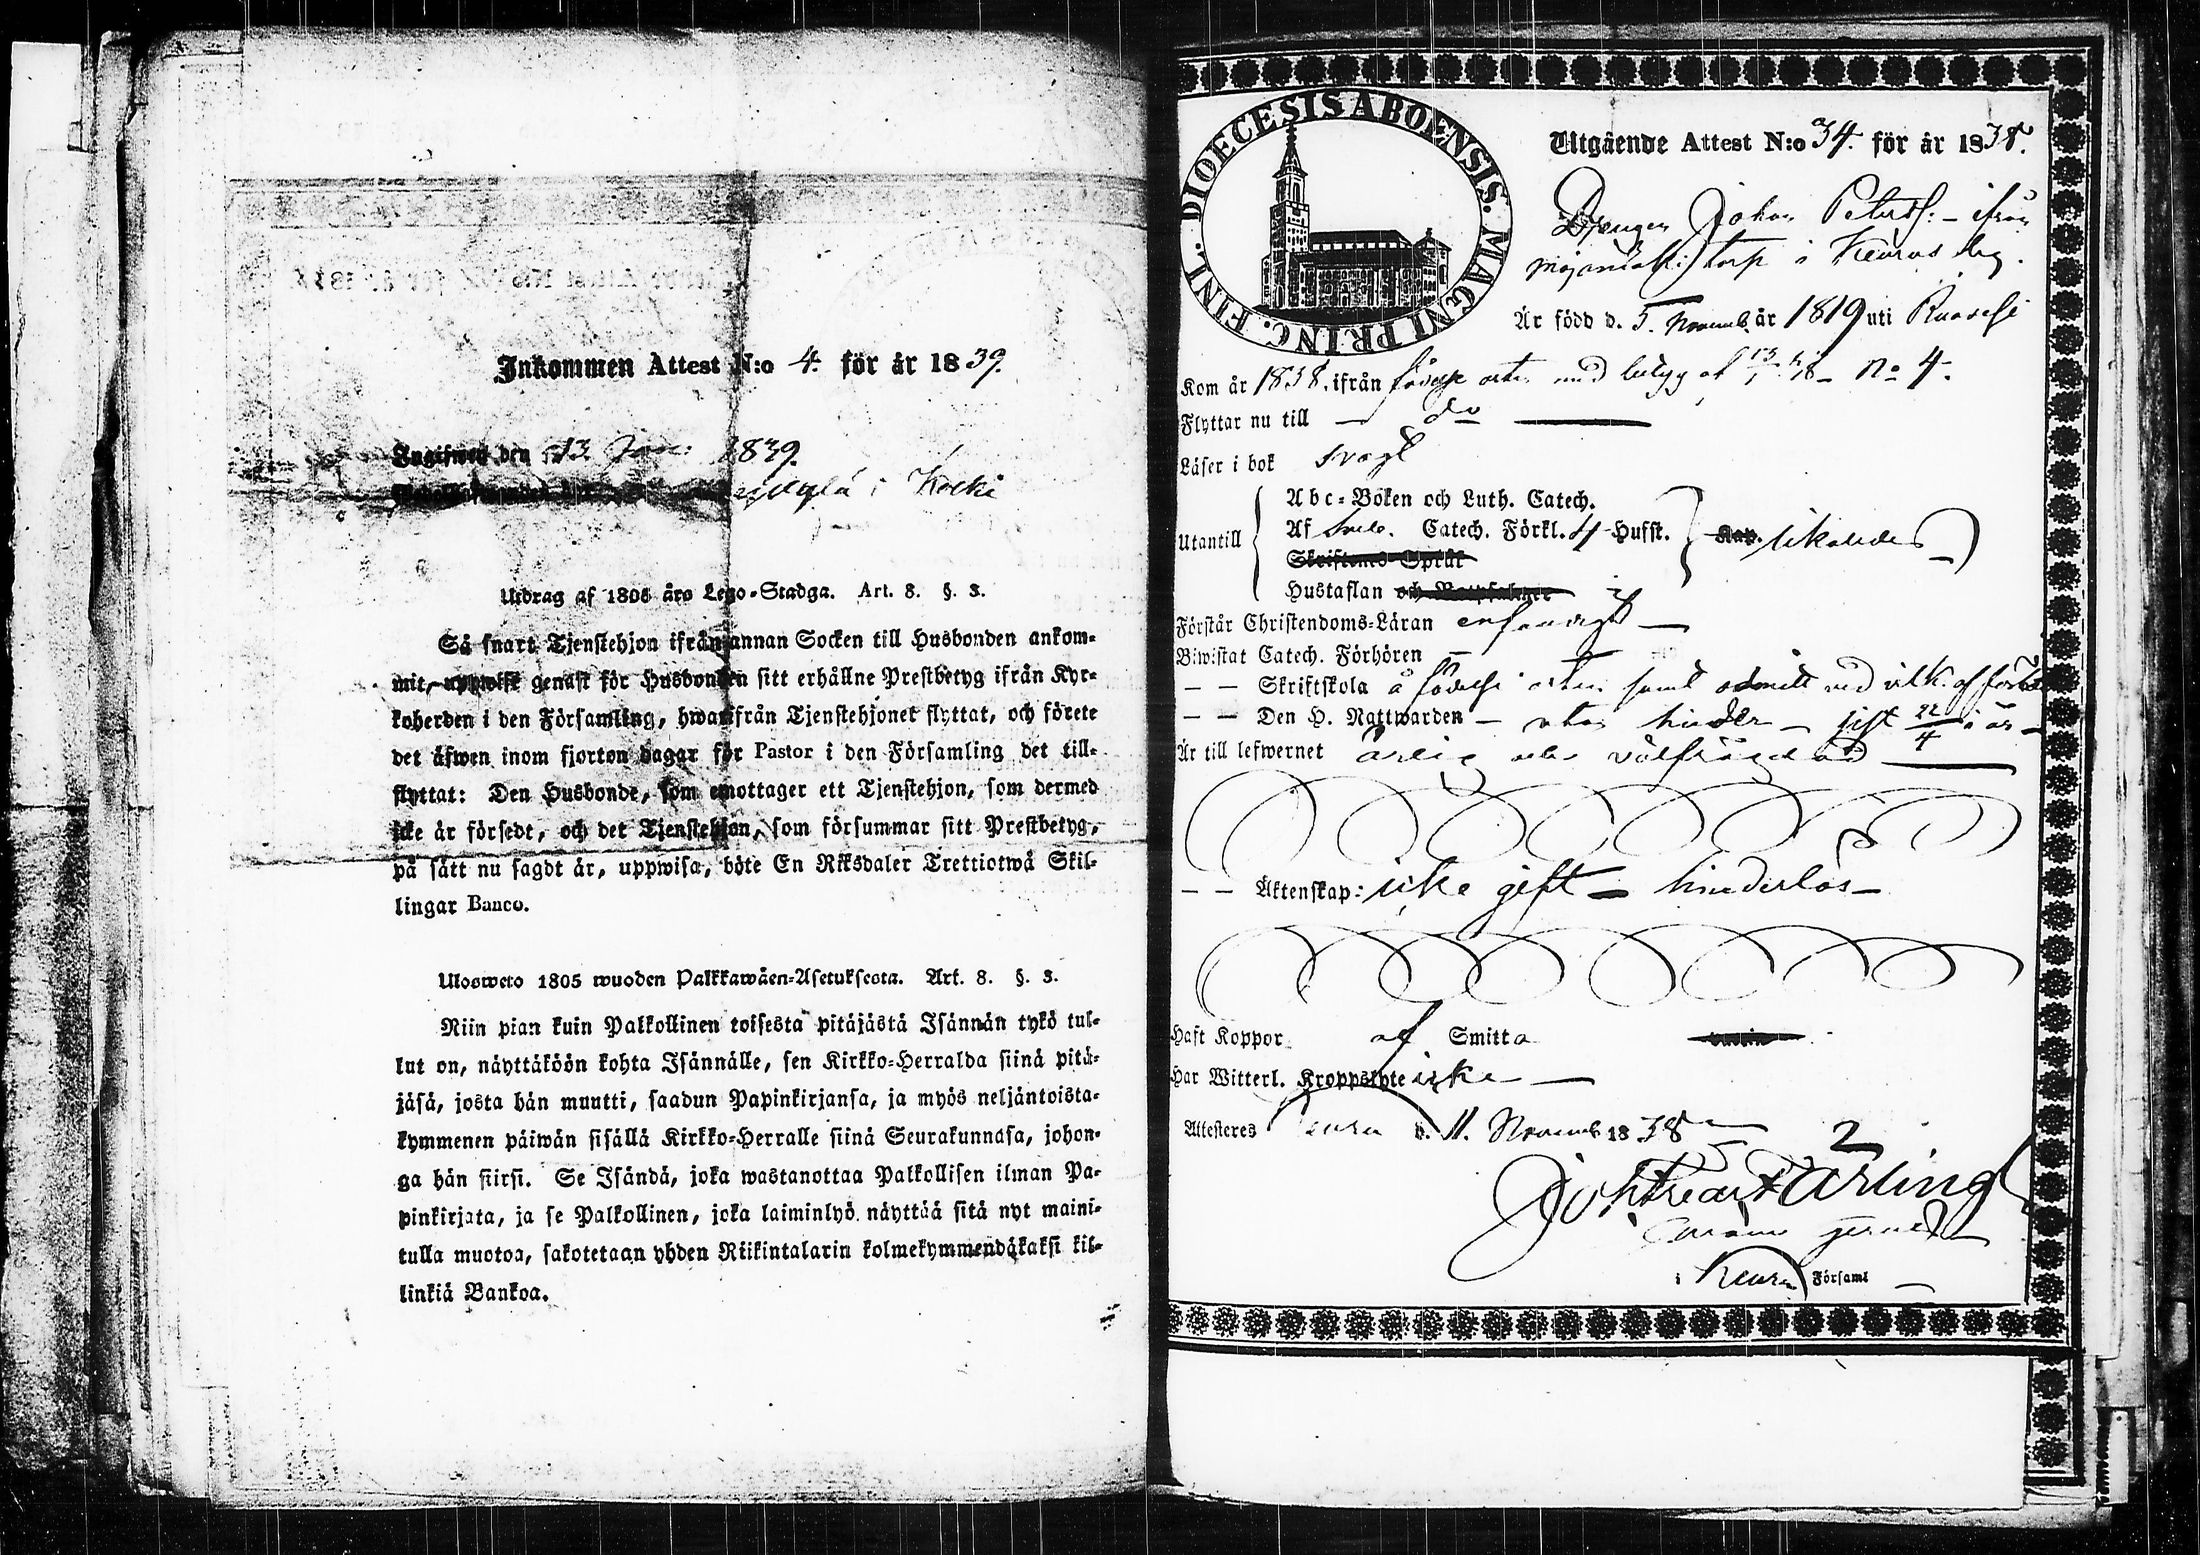 Inkommen Attest N:o 4. för år 1839.
Ingifwes den 13 Jan: 1839.
i Kocki
Utdrag af 1805 års Lego-Stadga. Art. 8. §. 3.
Så snart Tjenstehjon ifrån annan Socken till Husbonden ankom-
mit, uppwise genast för Husbonden sitt erhållne Prestbetyg ifrån Kyr-
koherden i den Församling, hwarifrån Tjenstehjonet flyttat, och förete
det äfwen inom fjorton dagar för Pastor i den Församling det till-
flyttat: Den Husbonde, som emottager ett Tjenstehjon, som dermed
icke är försedt, och det Tjenstehjon, som försummar sitt Prestbetyg,
på sätt nu sagdt är, uppwisa, böte En Riksdaler Trettiotwå Skil-
lingar Banco.
Ulosweto 1805 wuoden Palkkawäen-Asetuksesta. Art. 8. §. 3.
Niin pian kuin Palkollinen toisesta pitäjästä Isännän tykö tul-
lut on, näyttäköön kohta Isännälle, sen Kirkko-Herralda siinä pitä-
jäsä, josta hän muutti, saadun Papinkirjansa, ja myös neljäntoista-
kymmenen päiwän sisällä Kirkko-Herralle siinä Seurakunnasa, johon-
ga hän siirsi. Se Isändä, joka wastanottaa Palkollisen ilman Pa-
pinkirjata, ja se Palkollinen, joka laiminlyö näyttää sitä nyt maini-
tulla muotoa, sakotetaan yhden Riikintalarin kolmekymmendäkaksi kil-
linkiä Bankoa.
DIOECESIS ABOENSIS. MAGNI PRINC. FINL.
Utgående Attest N:o 34. för år 1838.
Drengen Johan Petersf:- ifrån
torp i Keurus
Är född d. 5. Novemb. år 1819 uti Ruovesi
Kom år 1838. ifrån födelse orten med betyg af N:o 4.
Flyttar nu till — do —
Läser i bok svagt
Utantill
Abc-Boken och Luth. Catech.
Af Sveb. Catech. Förkl. 4 Hufst. Kap. likaledes
Skriftenes Språk
Hustaflan och Botpsalmer
Förstår Christendoms-Läran enfaldigt —
Biwistat Catech. Förhören —
— — Skriftskola å födelse orten samt admitt. med vilk. af
— — Den H. Nattwarden — utan hinder — sist 22/4 i år —
Är till lefwernet ärlig och välfrägdad —
— — Äktenskap: icke gift — hinderlös —
Haft Koppor af Smitta
Har Witterl. Kroppslyte icke —
Attesteres Keuru d. 11. Novemb 1838
2
i Keuru Församl